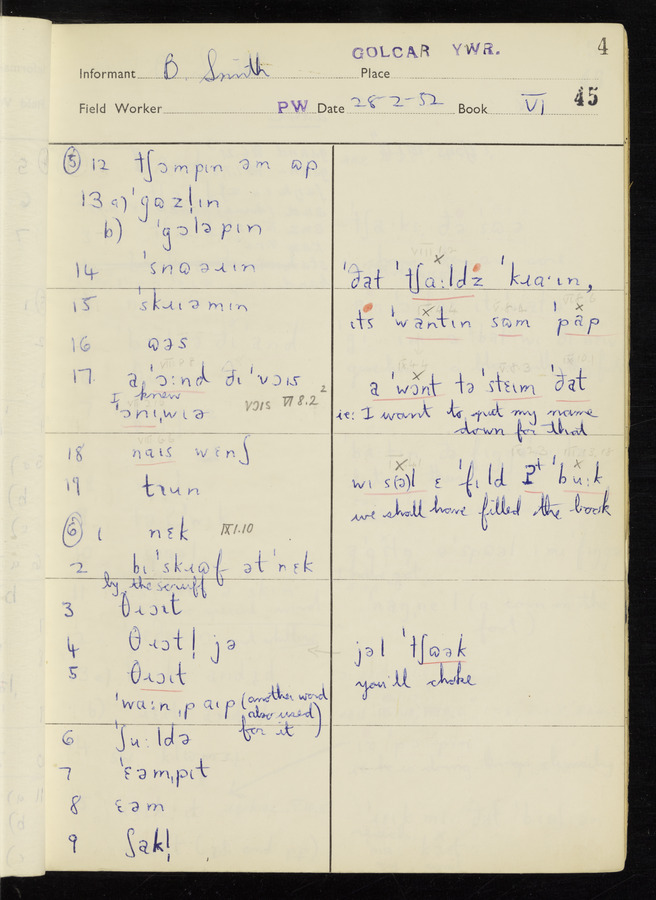 GOLCAR YWR. 4
Informant B. Smith Place
Field Worker PW Date 28-2-52 Book VI 45
⑤ 12 tʃɔmpɪn əm ɷp
13 a) ˈgɷzl̩ɪn
b) ˈgɔləpɪn
14 ˈsnɷəɹɪn
15 ˈskɹɪəmɪn
16 ɷəs
17. a ˈɔ:nd ðɪ ˈvɔɪs
I knew
ˈɔnɪˌwɪə vɔɪs VI 8.2
18 naɪs wɛnʃ
19 tɛun
⑥ 1 nɛk IX1.10
2 bɪ ˈskɹɷf ət ˈnɛk
by the scruff
3 θɹɔɪt
4 θɹɔtl̩ jə
5 θɹɔɪt
ˈwa:nˌpaɪp (another word
also used
for it)
6 ˈʃu:ldə
7 ˈɛəmˌpɪt
8 ɛəm
9 ʃakl̩
ˈðat ˈtʃa:ldz ˈkɹaˑɪn,
ɪts ˈwantɪn səm ˈpap
a ˈwɔnt tə ˈstɛɪm ˈðat
ie: I want to put my name
down for that
wɪ s(ə)l ɛ ˈfɪld ʔt ˈbu:k
we shall have filled the book
jəl ˈtʃɷək
you'll choke